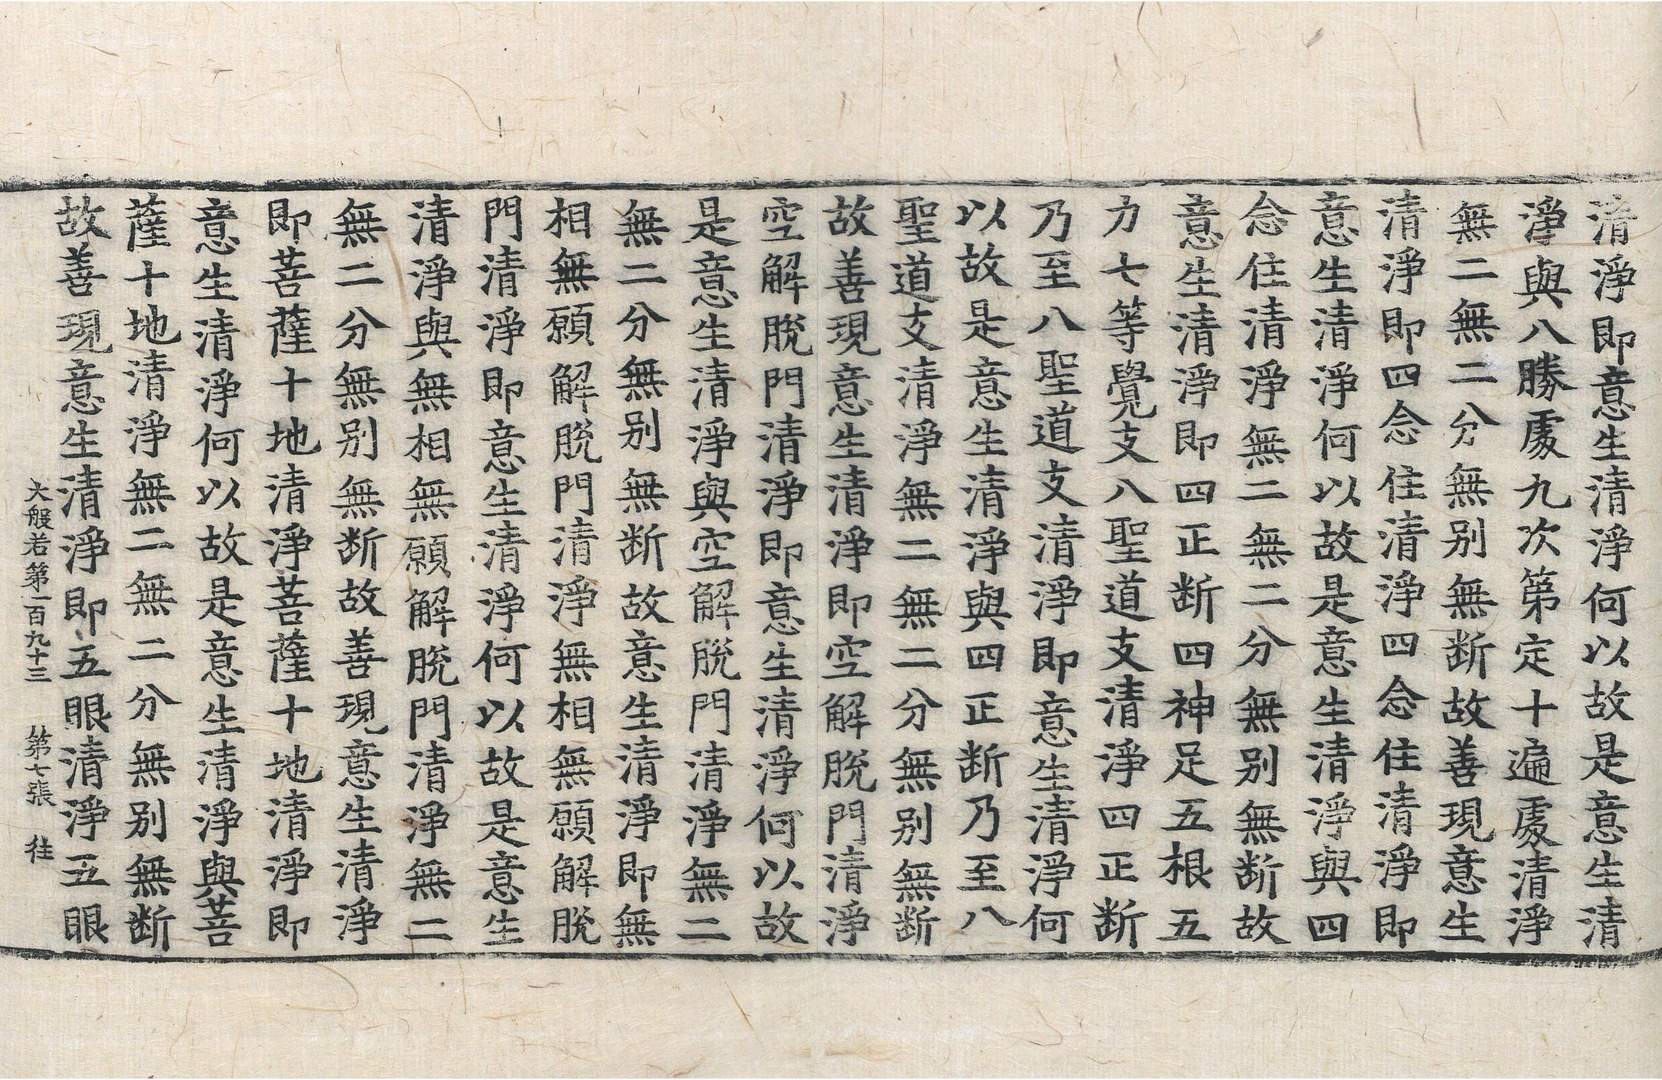 清淨即意生清淨何以故是意生清
淨與八勝處九次第定十遍處清淨
無二無二分無别無断故善現意生
清淨即四念住清淨四念住清淨即
意生清淨何以故是意生清淨與四
念住清淨無二無二分無别無断故
意生清淨即四正断四神足五根五
力七等覺支八聖道支清淨四正断
乃至八聖道支清淨即意生清淨何
以故是意生清淨與四正断乃至八
聖道支清淨無二無二分無别無断
故善現意生清淨即空解脫門清淨
空解脫門清淨即意生清淨何以故
是意生清淨與空解脫門清淨無二
無二分無别無断故意生清淨即無
相無願解脫門清淨無相無願解脫
門清淨即意生清淨何以故是意生
清淨與無相無願解脫門清淨無二
無二分無别無断故善現意生清淨
即菩薩十地清淨菩薩十地清淨即
意生清淨何以故是意生清淨與菩
薩十地清淨無二無二分無别無断
故善現意生清淨即五眼清淨五眼
大般若第一百九十三 第七張 往